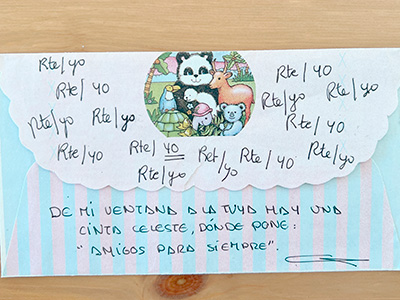 Rte/yo
Rte/yo
Rte/yo
Rte/yo
Rte/yo
Rte/yo
Rte/yo
Rte/yo
Rte/yo
Rte/yo
Ret/yo
Rte/yo
Rte/yo
Rte/yo
DE MI VENTANA A LA TUYA HAY UNA
CINTA CELESTE, DÓNDE PONE:
"AMIGOS PARA SIEMPRE".